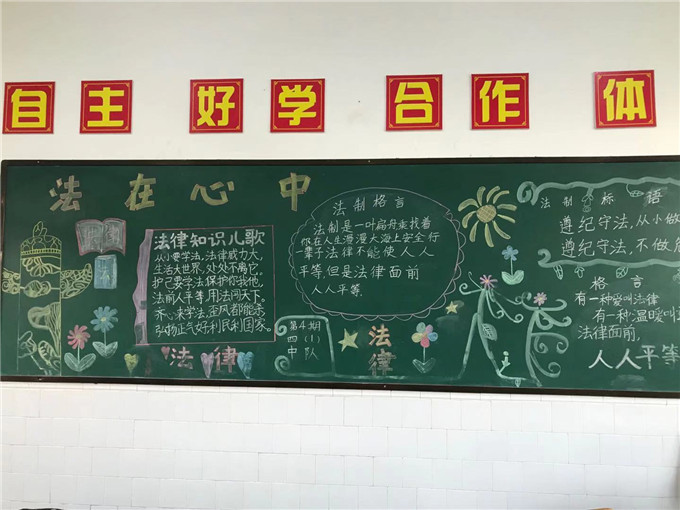 自 主 好 学 合 作 体
法 在 心 中
法律知识儿歌
从小要学法,法律威力大,
生活大世界,处处不离它,
护己要学法,保护你我他,
法前人平等,用法问天下。
齐心来学法,歪风都能
弘扬正气好利民利国家。
法律
法制格言
法制是一叶扁舟乘找着
你在人生漫漫大海上安全行
一辈子法律不能使人人
平等但是法律面前
人人平等。
第4期
四(1)
中队
法律
法制标语
遵纪守法,从小做
遵纪守法,不做
格言
有一种爱叫法律
有一种温暖叫
法律面前,
人人平等